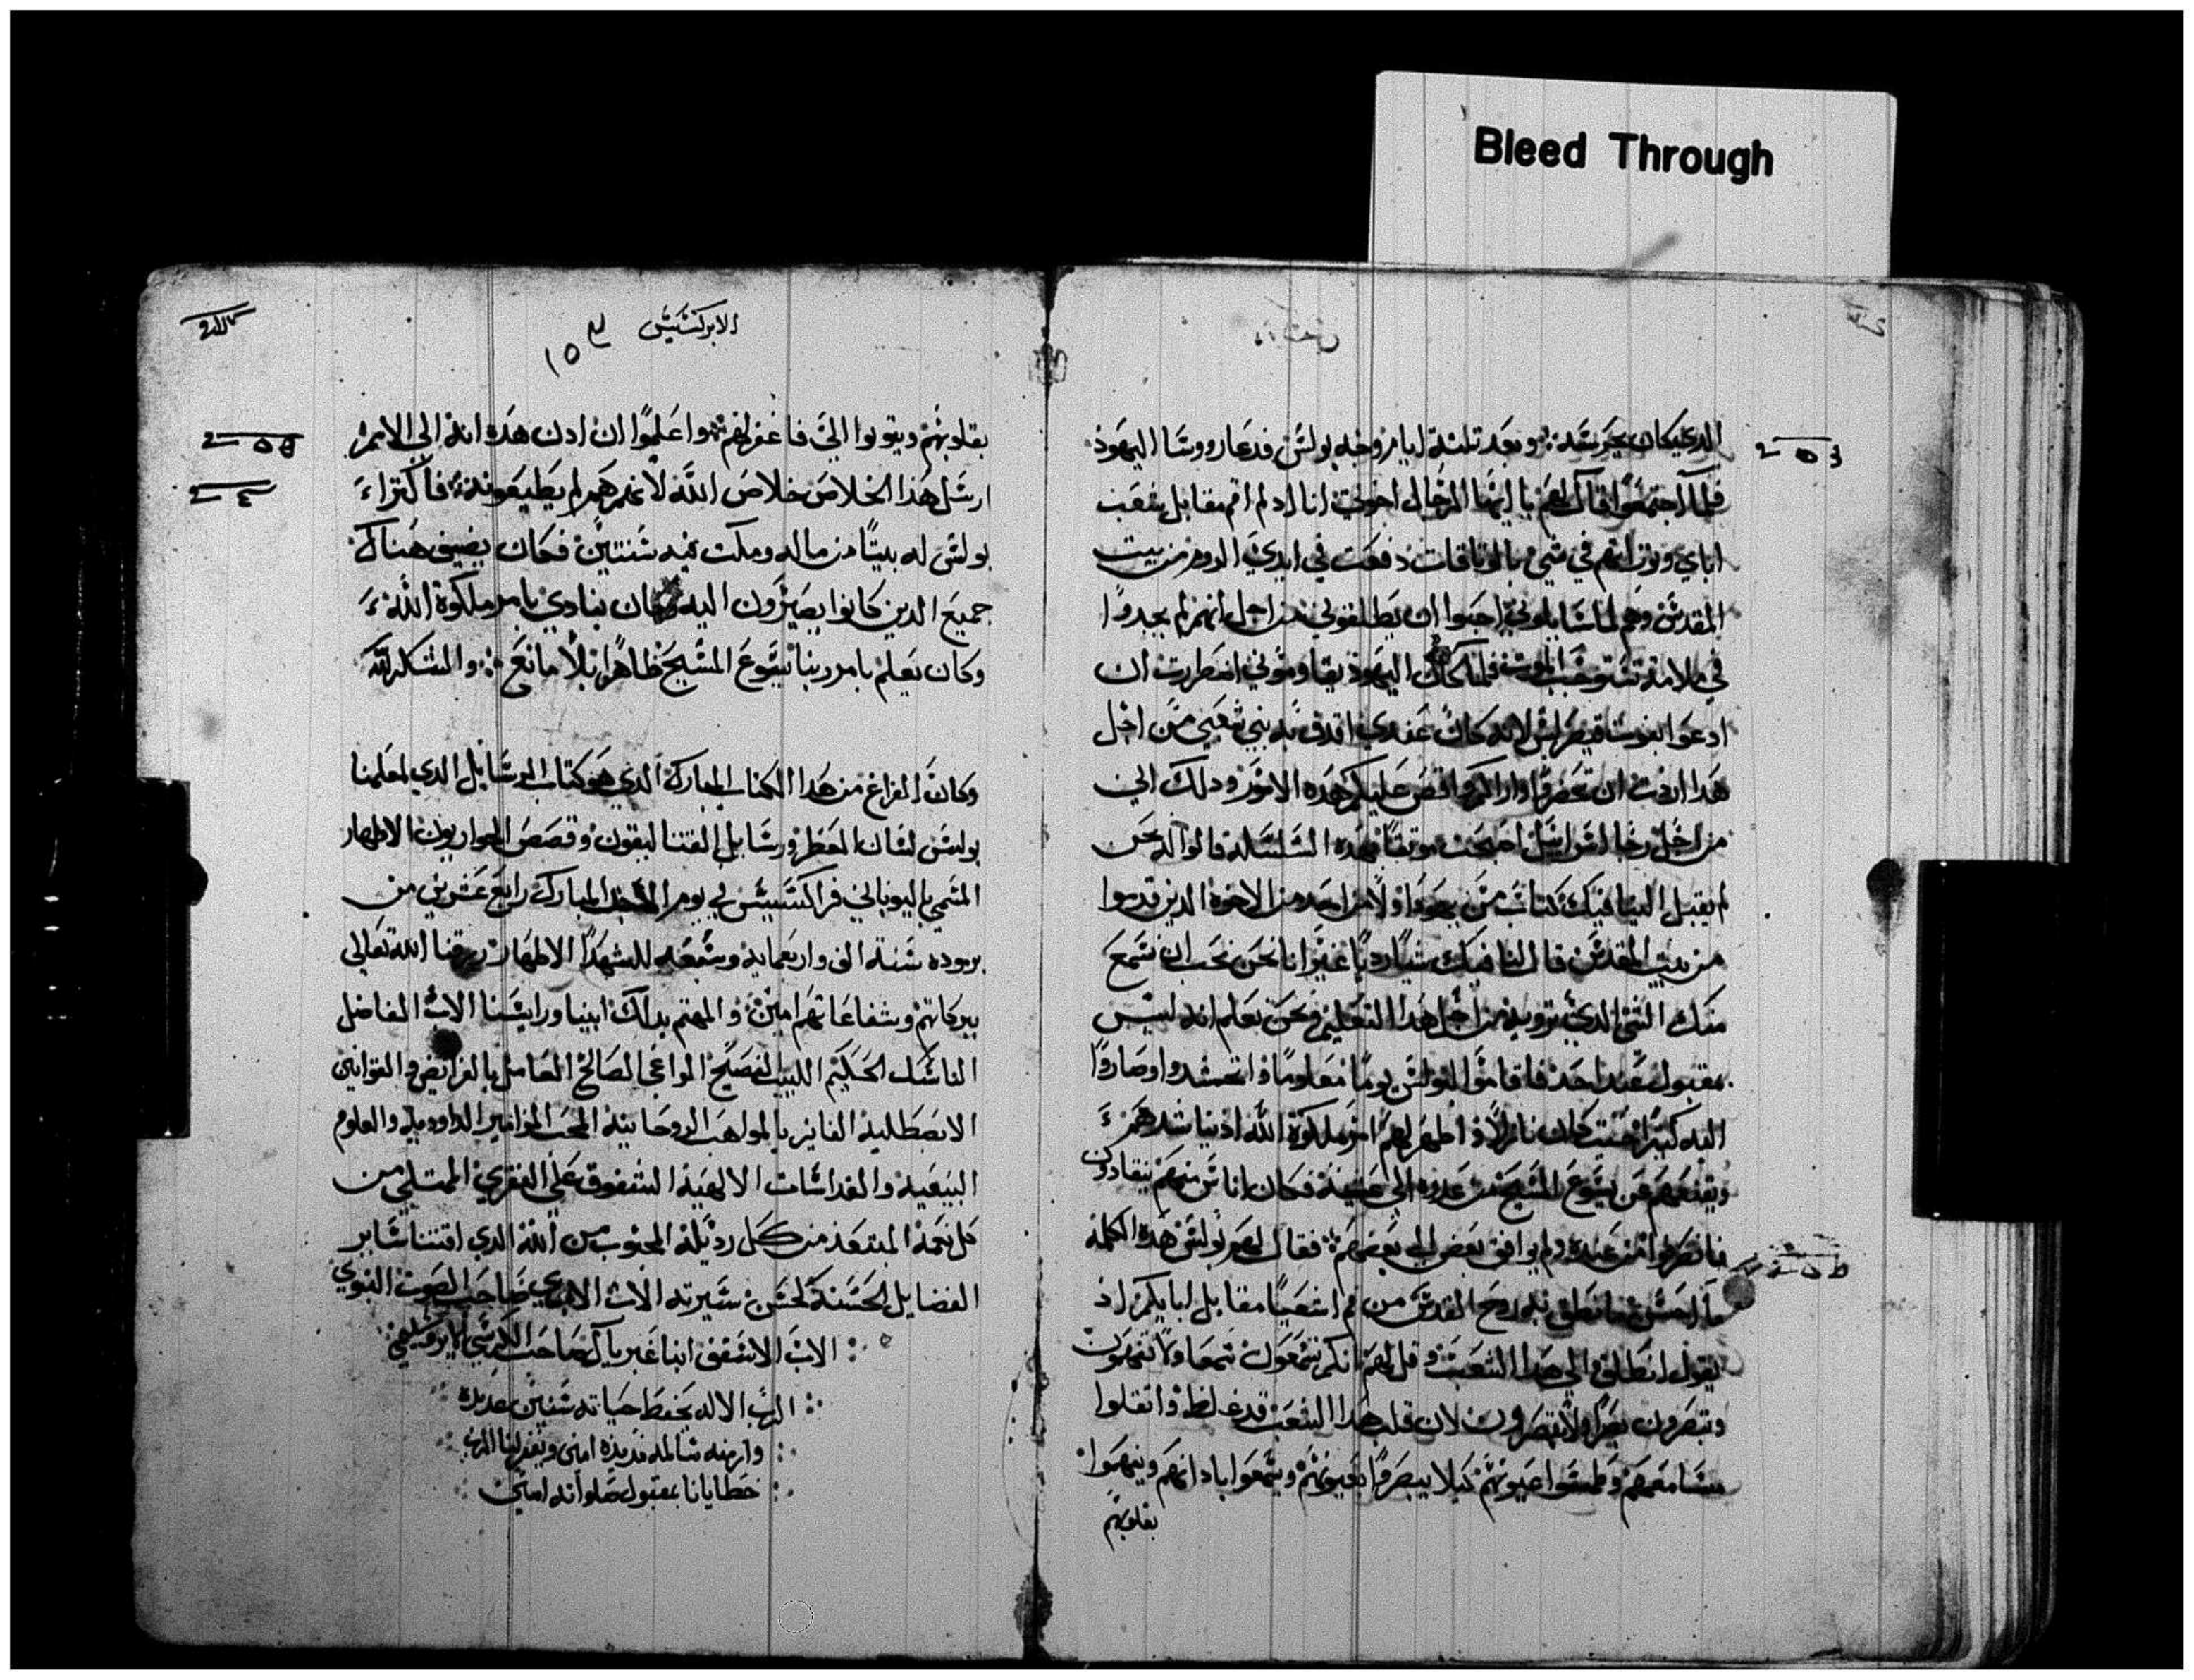 Bleed Through
الذي كان يحرسه وبعد تلثة ايام وجه بولس فدعا رووسا اليهود
فلما اجتمعوا قال لهم يا ايها الرجال اخوتي انا اد لم اقم مقابل شعب
اباي وتوراتهم في شي بالوتاقات دفعت في ايدي الروم من بيت
المقدس وهم لما سايلوني احبوا ان يطلقوني من اجل انهم لم يجدوا
في ملامة تستوجب الموت فلما كان اليهود يقاوموني اضطررت ان
ادعوا بغوت قيصر ليس لانه كان عندي ما اقدف به بني شعبي من اجل
هدا اردت ان تحضروا واراكم واقص عليكم هده الامور ودلك اني
من اجل رجا اسراييل اصبحت موتقا بهده السلسلة قالوا له نحن
لم يقبل الينا فيك كتاب من يهودا ولا من احد من الاخوة الدين قدموا
من بيت المقدس قال لنا فيك شيا رديا غير انا نحن نحب ان نسمع
منك الشي الدي ترويه من اجل هدا التعليم ونحن نعلم انه ليس
بمقبول عند احد فاقاموا لبولس يوما معلوما واتحشدوا وصاروا
اليه كتيرا حيت كان نازلا واظهر لهم امر ملكوة الله اد يناشدهم
ويقنعهم عن يسوع المسيح من غدوة الى عشية فكان اناس منهم ينقادون
فانصرفوا من عنده ولم يوافق بعض الى بعضهم فقال لهم بولس هده الكلمة
ما احسن ما نطق به روح القدس من فم اشعيا مقابل ابايكم اد
يقول انطلق الى هدا الشعب وقل لهم انكم تسمعون سمعا ولا تفهمون
وتبصرون بصرا ولا تبصرون لان قلب هدا الشعب قد غلظ واتقلوا
مسامعهم وطمسوا عيونهم كيلا يبصروا بعيونهم ويسمعوا باداانهم ويفهموا
بقلوبهم
الابركسيس
١٥٣
بقلوبهم ويتوبوا الي فاغفر لهم واعلموا ان ادن هده انه الى الامم
ارسل هدا الخلاص خلاص الله لانهم هم يطيعونه فاكترا
بولس له بيتا من ماله ومكت فيه سنتين فكان يضيف هناك
جميع الدين كانوا يصيرون اليه وكان ينادي بامر ملكوة الله
وكان يعلم بامر ربنا يسوع المسيح ظاهرا بلا مانع والشكر لله
وكان الفراغ من هدا الكتاب المبارك الدي هو كتاب الرسايل الدي لمعلمنا
بولس لسان العطر ورسايل القتاليقون وقصص الحواريون الاطهار
المسمي باليوناني فراكسيس في يوم الاحد المبارك رابع عشرين من
برموده سنة الف واربعماية وسبعه للشهدا الاطهار رزقنا الله تعالى
ببركاتهم وبشفاعاتهم امين والمهتم بدلك ابينا ورايسنا الاب الفاضل
الناسك الحكيم اللبيب الفصيح الواعي الصالح العامل بالفرايض والقوانين
الابصطلية الفايز بالمواهب الروحانية المحب المزامير الداوودية والعلوم
البيعية والقداسات الالهية الشفوق على الفقري الممتلي من
كل نعمة المبتعد من كل رديلة المحبوب من الله الدي اقتنا ساير
الفضايل الحسنة لحسن سيرته الاب صاحب الصوت النبوي
الاب الاسقف انبا غبريال صاحب الكرسي
الرب الاله يحفظ حياته سنين عديدة
وازمنه سالمه مديدة امين ويغفر لنا الرب
خطايانا بمقبول صلواته امين